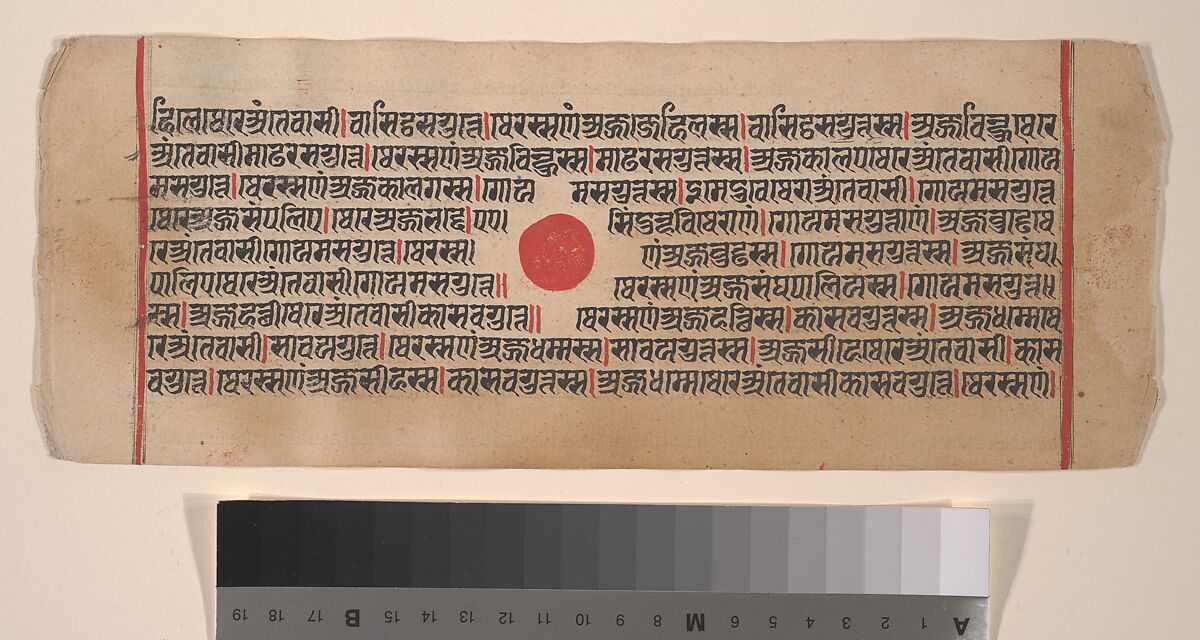 हिले थेरे अंतेवासी। वासिट्ठसगुत्ते। थेरस्सणं अज्जजेहिलस्स। वासिट्ठसगुत्तस्स। अज्जविण्हू थेरे
अंतेवासी माढरसगुत्ते। थेरस्सणं अज्जविण्हुस्स। माढरसगुत्तस्स। अज्जकालए थेरे अंतेवासी गोय
मसगुत्ते। थेरस्सणं अज्जकालगस्स। गोय मसगुत्तस्स। इमे दुवे थेरा अंतेवासी। गोयमसगुत्ते
थेरे अज्जसंपलिए। थेरे अज्जभद्दे। एए। सिं दुन्हवि थेराणं। गोयमसगुत्ताणं। अज्जवुड्ढे थे
रे अंतेवासी गोयमसगुत्ते। थेरस्स। णं अज्जवुड्ढस्स। गोयमसगुत्तस्स। अज्जसंघ।
पालिए थेरे अंतेवासी गोयमसगुत्ते॥ थेरस्सणं अज्जसंघपालियस्स। गोयमसगुत्त॥
स्स। अज्जहत्थी थेरे अंतेवासी कासवगुत्ते॥ थेरस्सणं अज्जहत्थिस्स। कासवगुत्तस्स। अज्जधम्मे थे
रे अंतेवासी। सावयगुत्ते। थेरस्सणं अज्जधम्मस्स। सावयगुत्तस्स। अज्जसीहे थेरे अंतेवासी। कास
वगुत्ते। थेरस्सणं अज्जसीहस्स। कासवगुत्तस्स। अज्जधम्मे थेरे अंतेवासी कासवगुत्ते। थेरस्सणं।
A 1 2 3 4 5 6 M 8 9 10 11 12 13 14 15 B 17 18 19